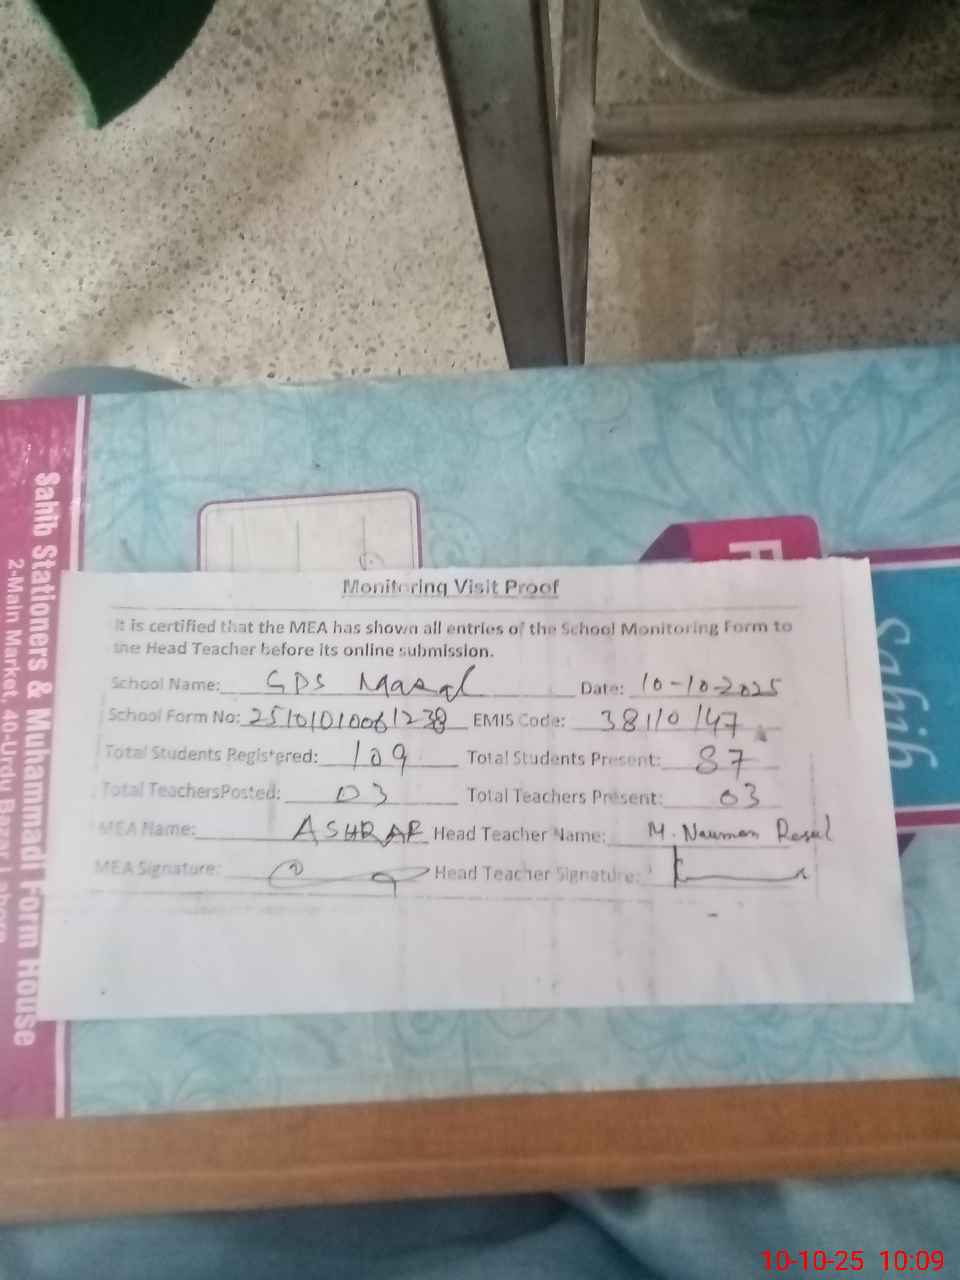 Monitoring Visit Proof
It is certified that the MEA has shown all entries of the School Monitoring Form to
the Head Teacher before its online submission.
School Name: GPS Date: 10-10-2025
School Form No: 25101010061238 EMIS Code: 38110147
Total Students Registered: 109 Total Students Present: 87
Total TeachersPosted: 03 Total Teachers Present: 03
MEA Name: ASHRAF Head Teacher Name: M. Nauman Rasul
MEA Signature: Head Teacher Signature:
Sahib Stationers & Muhammad Form House
2-Main Market, 40-Urdu Bazar Lahore
Sahib
10-10-25 10:09